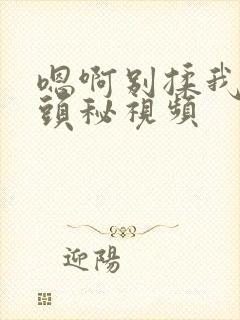 嗯啊别揉我
頭秘視頻
迎陽